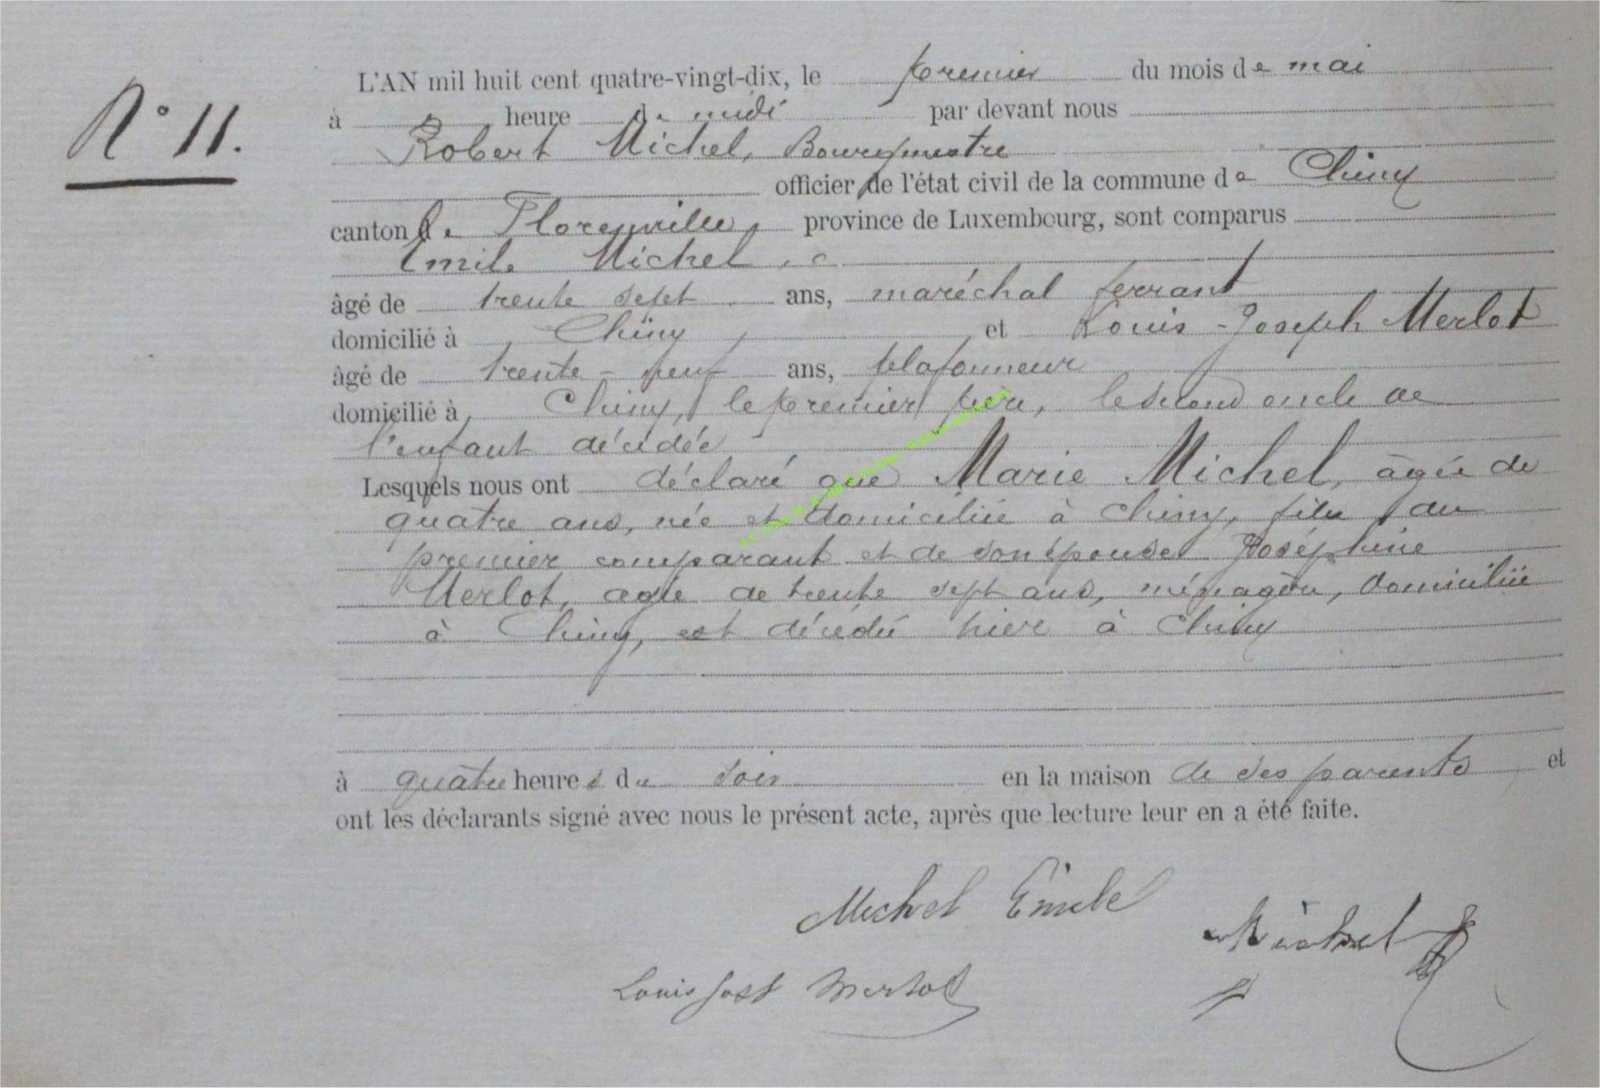 N° 11.
L'AN mil huit cent quatre-vingt-dix, le premier du mois de mai
à heure de midi par devant nous
Robert Michel, Bourgmestre
officier de l'état civil de la commune de Chiny
canton de Florenville, province de Luxembourg, sont comparus
Emile Michel,
âgé de trente sept ans, maréchal ferrant
domicilié à Chiny et Louis-Joseph Merlot
âgé de trente-neuf ans, plafonneur
domicilié à Chiny, le premier père, le second oncle de
l'enfant décédée
Lesquels nous ont déclaré que Marie Michel, âgée de
quatre ans, née et domiciliée à Chiny, fille du
premier comparant et de son épouse Joséphine
Merlot, agée de trente sept ans, ménagère, domiciliée
à Chiny, est décédée hier à Chiny
à quatre heures du soir en la maison de ses parents et
ont les déclarants signé avec nous le présent acte, après que lecture leur en a été faite.
Michel Emile
Michel
Louis Josh Merlot